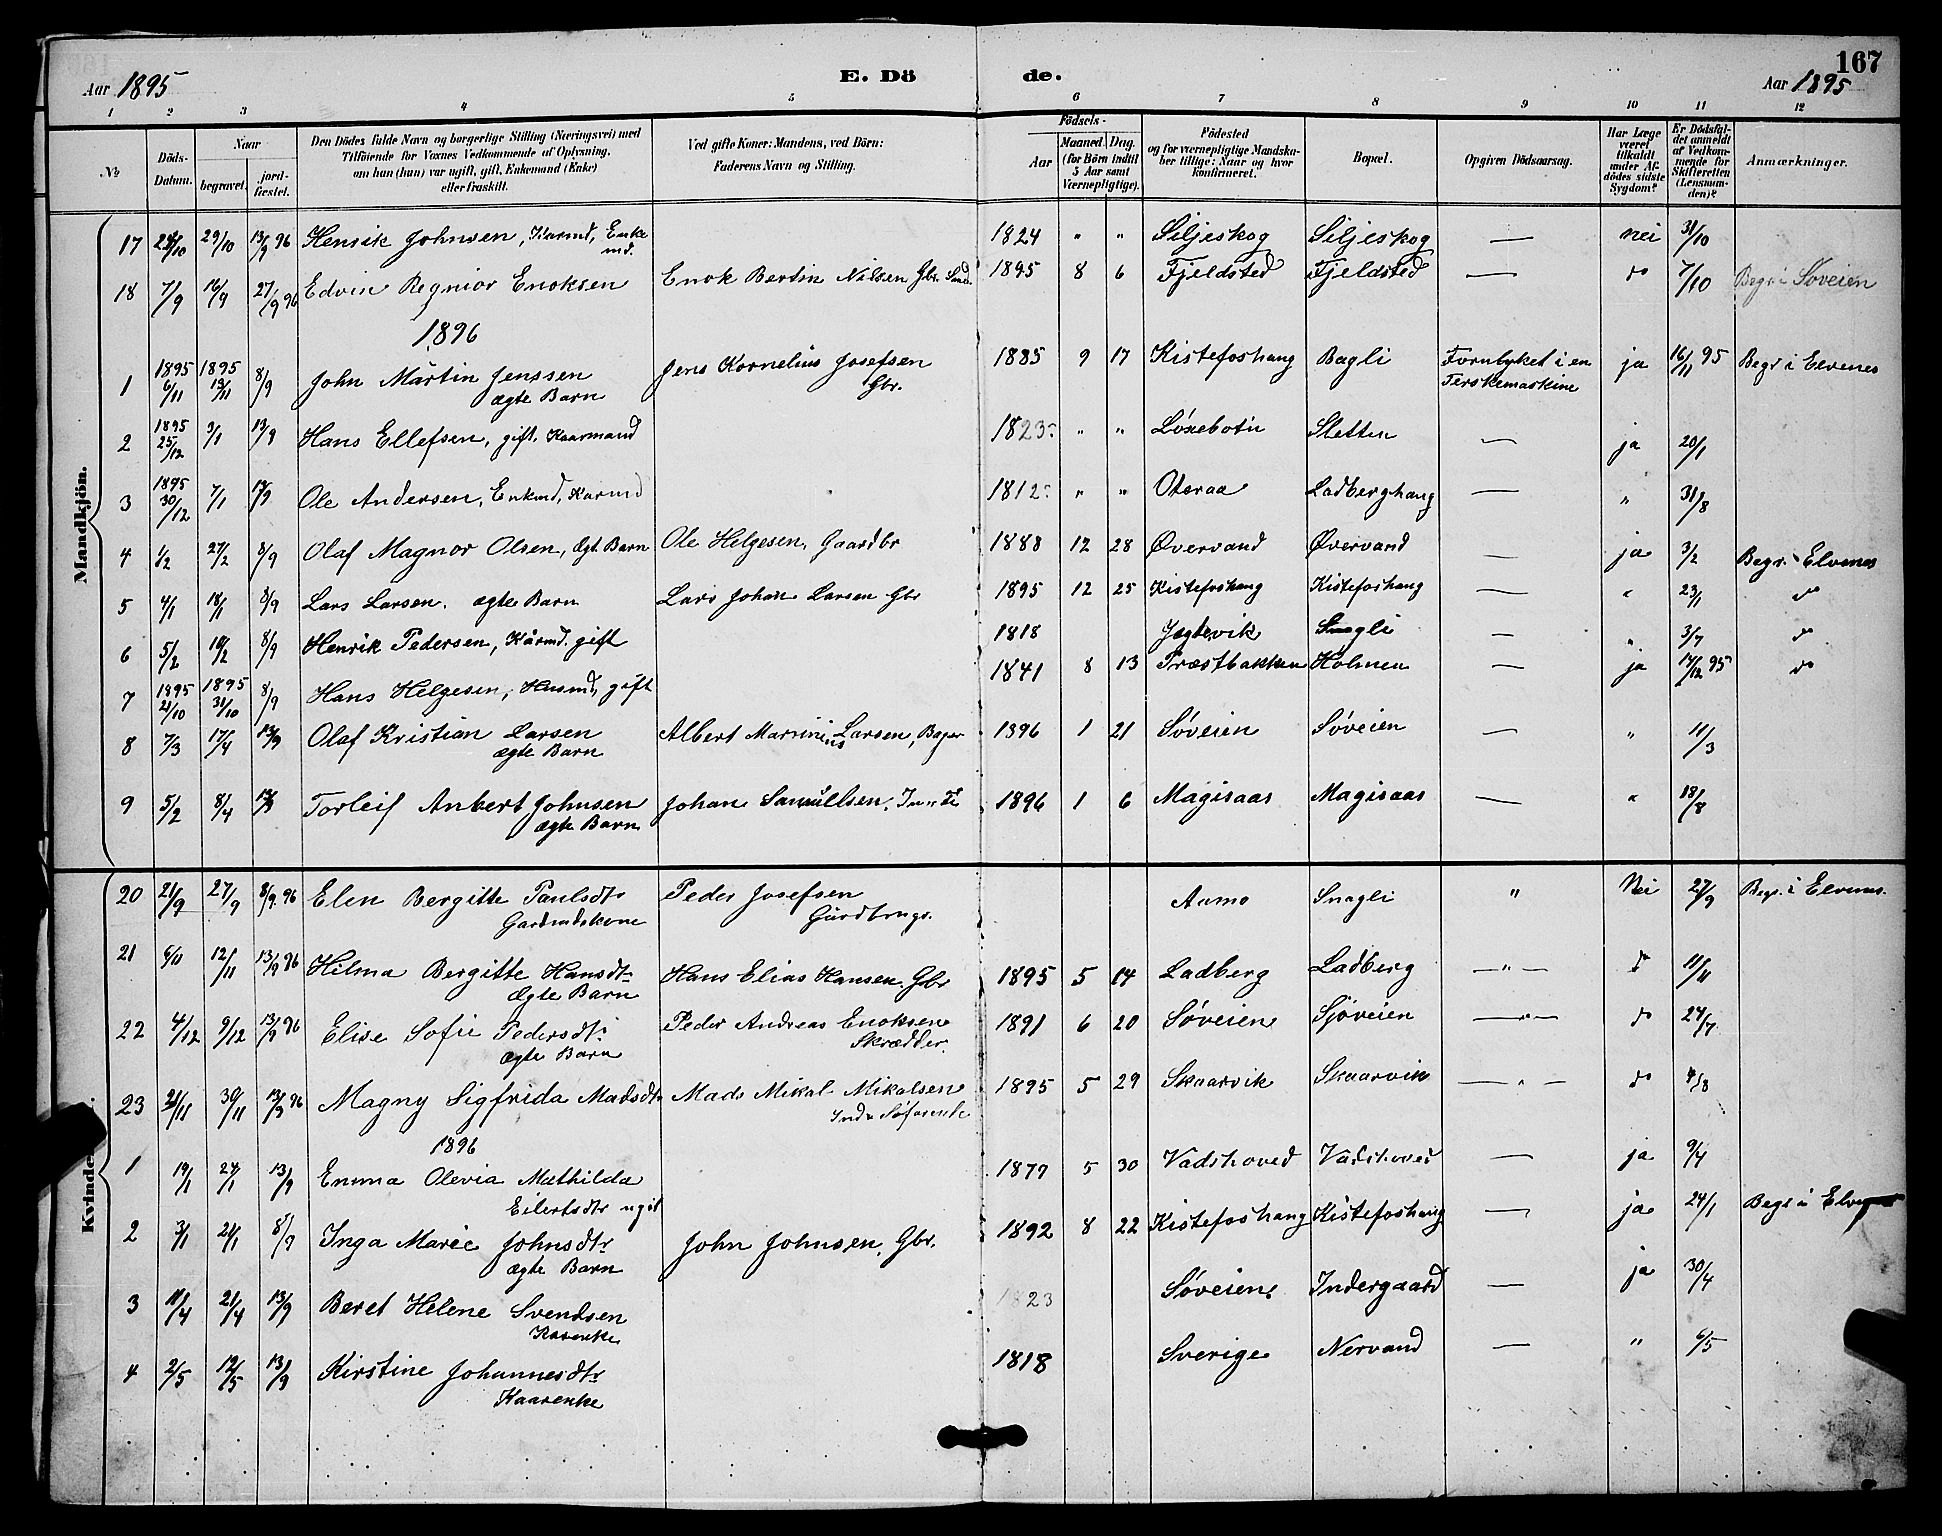 167
Aar 1895 E. Dö de. Aar 1895
1 2 3 4 5 6 7 8 9 10 11 12
№ Döds-Datum. Naar begravet. jord-fæstet. Den Dödes fulde Navn og borgerlige Stilling (Næringsvei) med Tilföiende for Voxnes Vedkommende af Oplysning, om han (hun) var ugift, gift, Enkemand (Enke) eller fraskilt. Ved gifte Koner: Mandens, ved Börn: Faderens Navn og Stilling. Födsels- Aar Maaned. Dag. (for Börn indtil 5 Aar samt Værnepligtige). Födested og for værnepligtige Mandskaber tillige: Naar og hvor konfirmeret. Bopæl. Opgiven Dödsaarsag. Har Læge været tilkaldt under Afdödes sidste Sygdom? Er Dödsfaldet anmeldt af Vedkommende for Skifteretten (Lensmanden)? Anmærkninger.
Mandkjön.
17 29/10 13/9 96 Henrik Johnsen, Karmd, Enke md. 1824 " " Siljeskog Siljeskog — nei 31/10
18 7/9 16/9 27/9 96 Edvin Regnior Enoksen Enok Bertin Nilsen Gbr. 1895 8 6 Fjeldsted Fjeldsted — do 7/10 Begr i Søveien
1896
1 1895 6/11 1895 13/11 8/9 John Martin Jenssen ægte Barn Jens Kornelius Josefsen Gbr. 1885 9 17 Kistefoshaug Bagli Forulyket i en Terskemaskine ja 16/11 95 Begr i Elvenes
2 1895 25/12 3/1 13/9 Hans Ellefsen, gift, Kaarmand 1823 " " Løksebotn Sletten — ja 20/1
3 1895 30/12 7/1 13/9 Ole Andersen, Enkmd, Karmd 1812 " " Oteraa Ladberghaug — " 31/8
4 1/2 27/2 8/9 Olaf Magnor Olsen, ægt. Barn Ole Helgesen, Gaardbr 1888 12 28 Øvervand Øvervand — ja 3/2 Begr. i Elvenes
5 4/1 18/1 8/9 Lars Larsen, ægte Barn Lars Johan Larsen Gbr 1895 12 25 Kistefoshaug Kistefoshaug — " 23/1 do
6 5/2 19/2 8/9 Henrik Pedersen, Kårmd. gift 1818 Jægtevik Snagli — " 3/7 do
7 1895 21/10 1895 31/10 8/9 Hans Helgesen, Husmd, gift 1841 8 13 Præstbakken Holmen — ja 14/12 95 do
8 7/3 17/4 13/9 Olaf Kristian Larsen ægte Barn Albert Marinius Larsen, 1896 1 21 Søveien Søveien — " 11/3
9 5/2 8/4 13/9 Torleif Anbert Johnsen ægte Barn Johan Samuelsen, 1896 1 6 Magisaas Magisaas — " 18/8
Kvinde
20 21/9 27/9 8/9 96 Elen Bergitte Paulsdtr Gardmdskone Peder Josefsen Gårdbrugr. Aamo Snagli " Nei 27/9 Begr. i Elvenes.
21 6/11 12/11 13/9 96 Hilma Bergitte Hansdtr ægte Barn Hans Elias Hansen Gbr 1895 5 14 Ladberg Ladberg —"— do 11/11
22 4/12 9/12 13/9 96 Elise Sofie Pedersdtr ægte Barn Peder Andreas Enoksen Skrædder. 1891 6 20 Søveien Sjøveien —"— do 24/7
23 21/11 30/11 13/9 96 Magny Sigfrida Madsdtr Mads Mikal Mikalsen 1895 5 29 Skaarvik Skaarvik —"— do
1896
1 19/1 27/1 13/9 Emma Olevia Mathilda Eilertsdtr ugift 1877 5 30 Vadshoved Vadshoved — ja 9/4
2 3/1 21/1 8/9 Inga Marie Johnsdtr ægte Barn John Johnsen, Gbr. 1892 8 22 Kistefoshaug Kistefoshaug — ja 24/1 Begr i Elvenes
3 11/4 21/4 13/9 Beret Helene Svendsen Kaarenke 1823 Søveien Indergaard — ja 30/4
4 2/5 12/5 13/9 Kirstine Johannesdtr Kaarenke 1818 Sverige Nervand — " 6/5